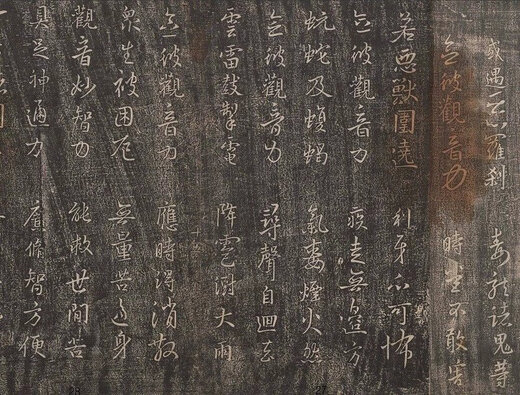 或遇惡羅刹 毒龍諸鬼等
念彼觀音力 時悉不敢害
若惡獸圍遶 利牙爪可怖
念彼觀音力 疾走無邊方
蚖蛇及蝮蠍 氣毒煙火然
念彼觀音力 尋聲自迴去
雲雷鼓掣電 降雹澍大雨
念彼觀音力 應時得消散
衆生被困厄 無量苦逼身
觀音妙智力 能救世間苦
具足神通力 廣修智方便